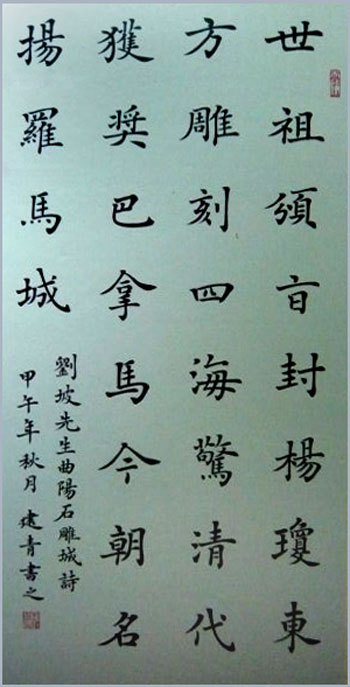 世祖頒旨封楊瓊東
方雕刻四海驚清代
獲奬巴拿馬今朝名
揚羅馬城
劉坡先生曲陽石雕城詩
甲午年秋月建青書之